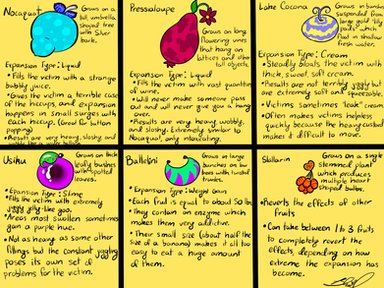 Nocaquat
Grows on a
tall, umbrella
shaped tree
with Silver
bark.
Expansion Type: Liquid
• Fills the victim with a strange
bubbly juice.
• Gives the victim a terrible case
of the hiccups, and expansion
happens in small surges with
each hiccup. (Great for button
popping)
• Results are very heavy, sloshy, and
Pressaloupe
Grows on long,
flowering vines
that hang on
lattices and other
tall objects.
Expansion Type: Liquid
• Fills the victim with vast quantities
of wine.
• Will never make someone pass
out and will never give you a hang
over.
• Results are very heavy, wobbly,
and sloshy. Extremely similar to
Nocaquat, only intoxicating.
Lake Cocona
Grows in bunches
suspended from
large gold "lily
pads" which
float in shallow
water.
Expansion Type: Cream
• Steadily bloats the victim with
thick, sweet, soft cream.
• Results are not terribly jiggly but are
extremely soft and squeezable.
• Victims sometimes "leak" cream.
• Often makes victims helpless
quickly because the heavy custard
makes it difficult to move.
Usiku
Grows on thick
leafy bushes
with spotted
leaves.
• Expansion Type: Slime
• Fills the victim with extremely
jiggly jelly like goo.
• Areas most swollen sometimes
gain a purple hue.
• Not as heavy as some other
fillings but the constant jiggling
poses its own set of
problems for the victim.
Ballelini
Grows in large
bunches on low
trees with twisted
trunks.
• Expansion Type: Weight Gain
• Each fruit is equal to about 50 lbs.
• They contain an enzyme which
makes them very addictive.
• Their small size (about half the
size of a banana) makes it all too
easy to eat a huge amount
of them.
Grows on a single
stemmed plant
which produces
multiple heart
shaped bulbs.
• Reverts the effects of other
fruits
• Can take between 1 to 8 fruits
to completely revert the
effects, depending on
how extreme the expansion
has become.